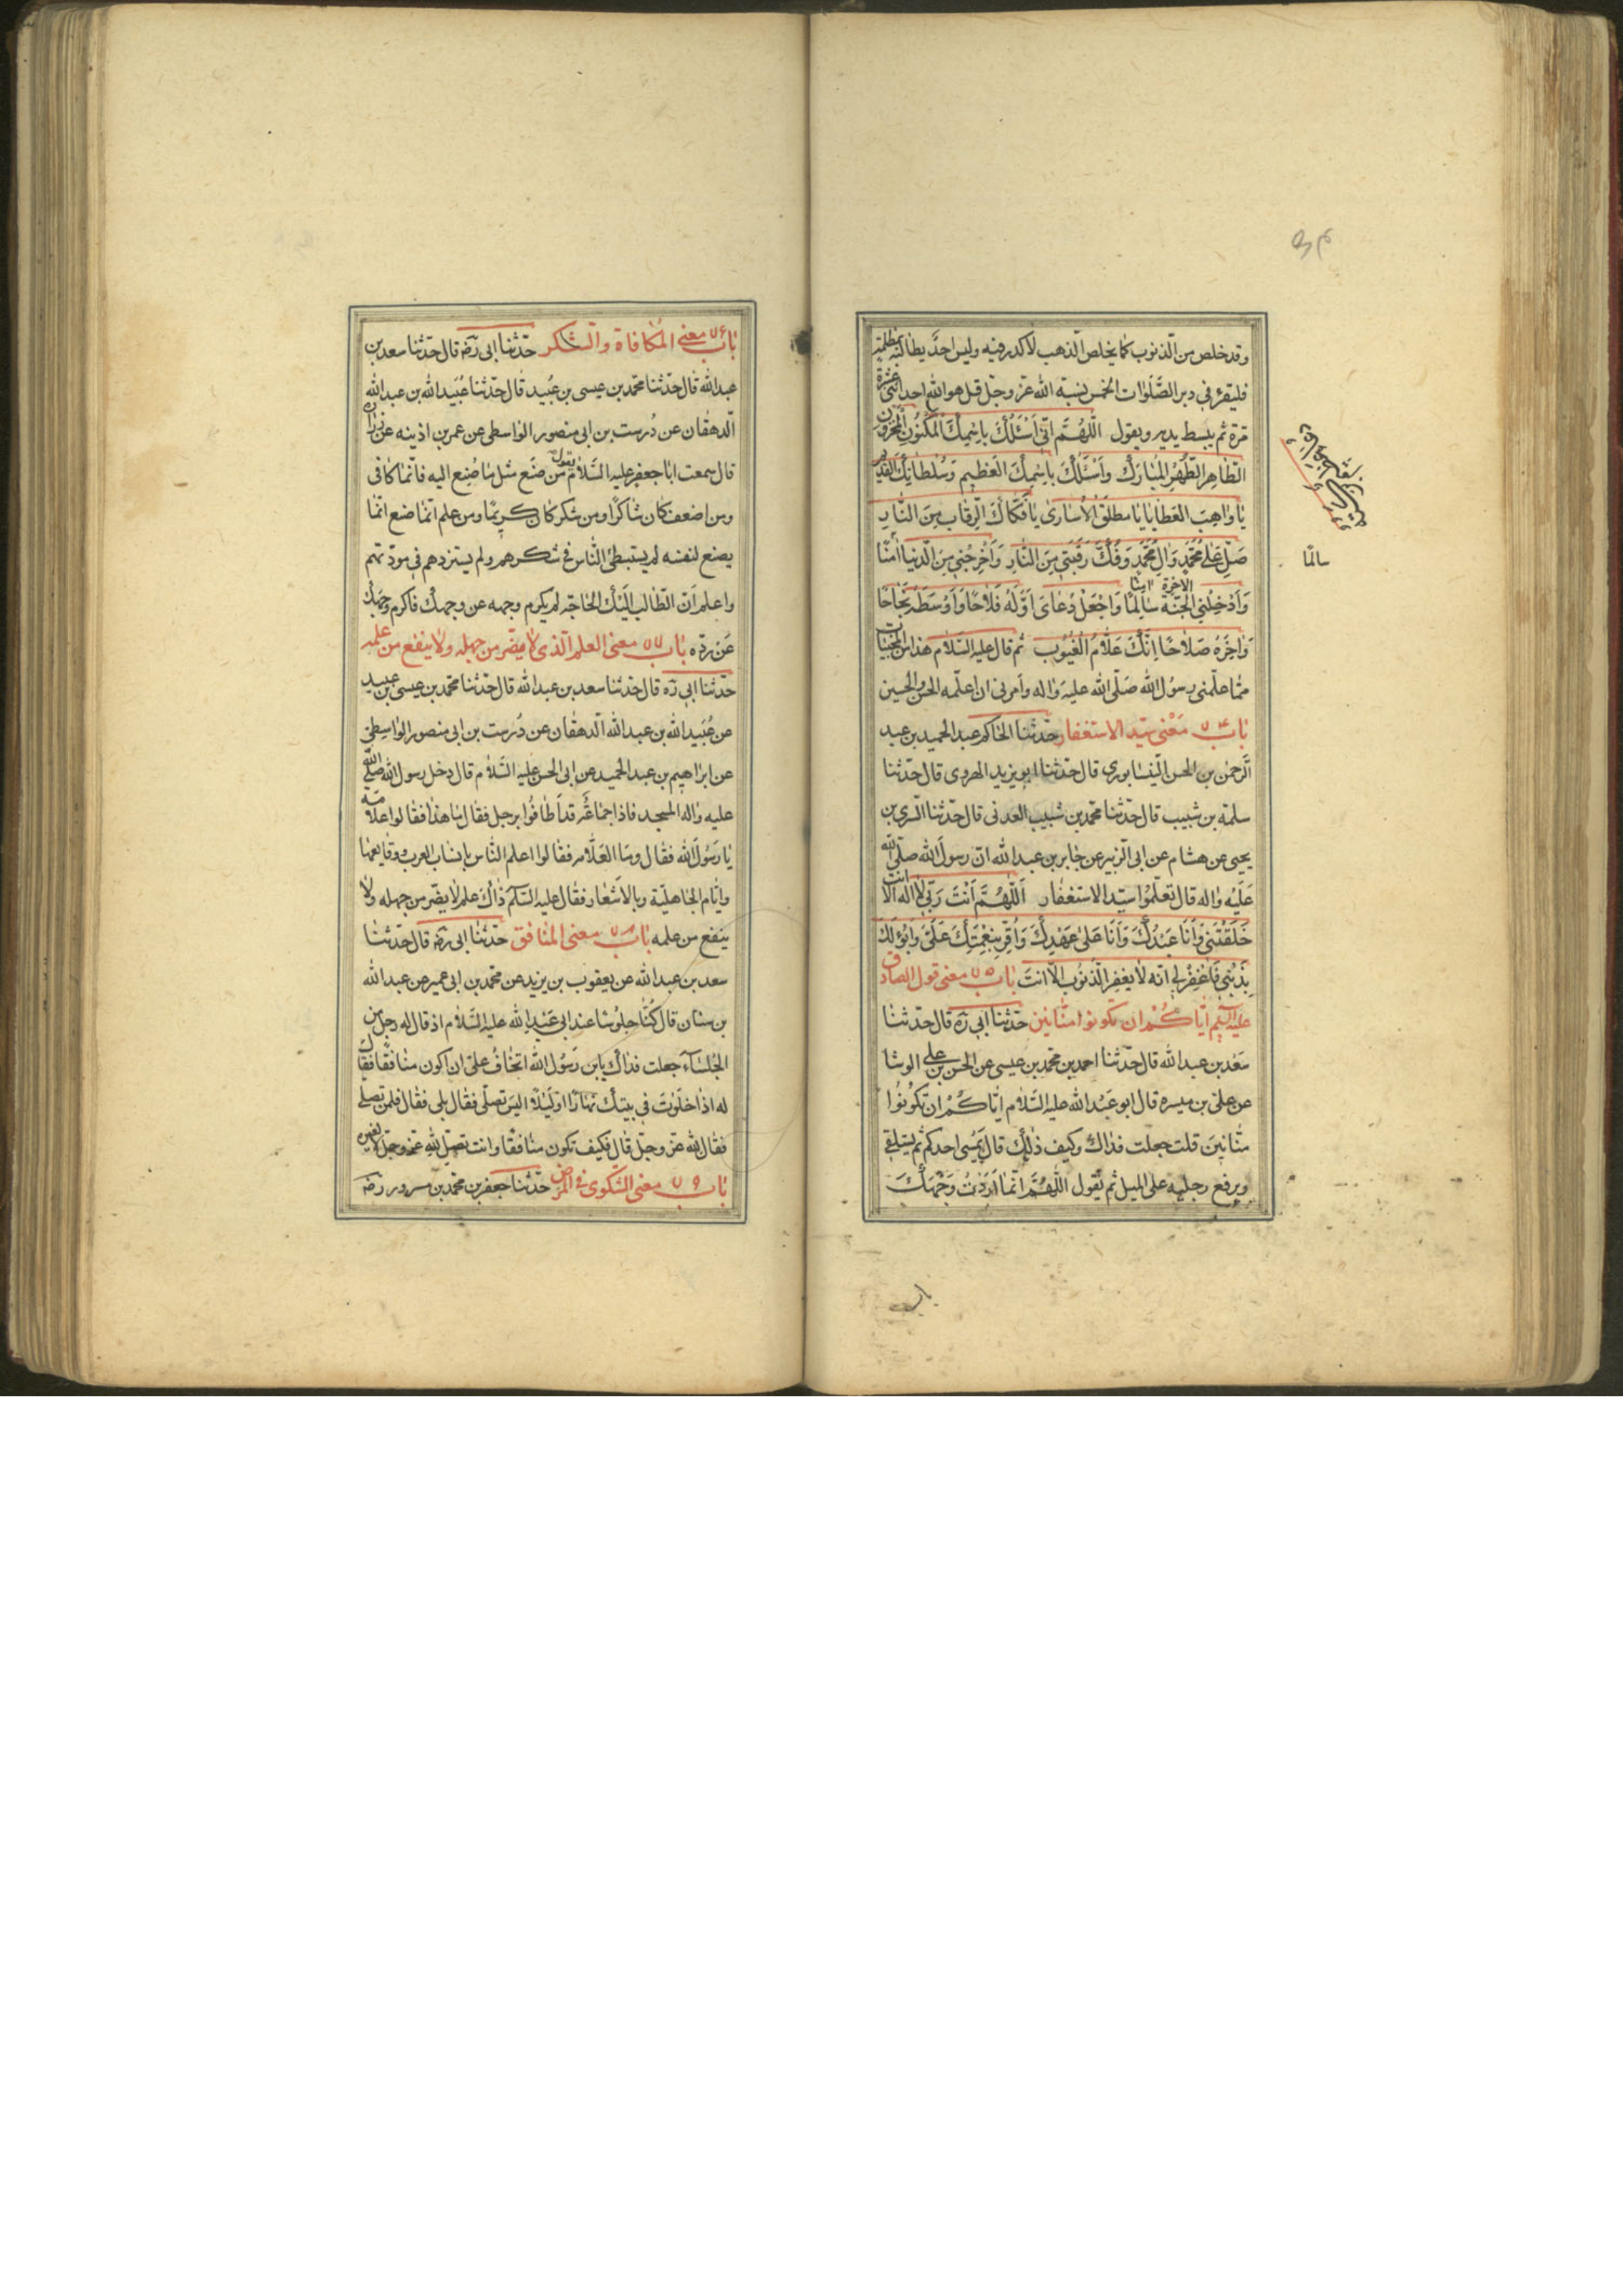 وقد خلص من الذنوب كما يخلص الذهب لا كدر فيه وليس احد يطالبه بمظلمة
فليقرء في دبر الصّلوات الخمس نسبة الله عزّ وجلّ قل هو الله احد اثنى عشرة
مرّة ثم يبسط يديه ويقول اللّهُمَّ انّى اَسْئَلُكَ بِاسْمِكَ المَكْنُونِ المخزون
الطّاهِرِ الطُّهْرِ المُبارَكِ واَسْئَلُكَ بِاسْمِكَ العَظيمِ وَسُلْطانِكَ القَديم
يا واهِبَ العَطايا يا مطلق الاُسارى يا فَكّاكَ الرِّقابِ مِنَ النّارِ
صَلِّ عَلى مُحَمَّدٍ وَالِ مُحَمَّدٍ وَفُكَّ رَقَبَتي مِنَ النّارِ وَاَخْرِجْني مِنَ الدّنيا امنًا
وَاَدْخِلْني الجَنَّةَ سالِمًا وَاجْعَلْ دُعائى اَوَّلَهُ فَلاحًا وَاَوْسَطَهُ نَجاحًا
وَاخِرَهُ صَلاحًا اِنَّكَ عَلّامُ الغُيُوبِ ثم قال عليه السّلام هذا من المخبيات
ممّا علّمنى رسول الله صَلّى الله عليه واله وامرنى ان اعلّمه الحسن والحسين
باب ٧٤ مَعْنى سيّد الاستغفار حدّثنا الحاكم عبد الحميد بن عبد
الرّحمن بن الحسن النّيسابورى قال حدّثنا ابو يزيد الهروى قال حدّثنا
سلمة بن شبيب قال حدّثنا محمّد بن شبيب العدنى قال حدّثنا السّرى بن
يحيى عن هشام عن ابى الزّبير عن جابر بن عبد الله انّ رسول الله صلّى الله
عَلَيْه واله قال تعلّمُوا سيّد الاستغفار اَللّهُمَّ اَنْتَ رَبّى لا اله الّا انت
خَلَقْتَنى وَاَنَا عَبْدُكَ وَاَنَا عَلى عَهْدِكَ وَاُقِرُّ بِنِعْمَتِكَ عَلَىَّ وَابُوءُ لَكَ
بِذَنْبى فَاغْفِرْلى انّه لا يغفر الذّنوب الّا انتَ باب ٧٥ معنى قول الصادق
عليه السّلم ايّاكُمْ ان تكونوا منّانين حدّثنا ابى ره قال حدّثنا
سَعد بن عبد الله قال حدّثنا احمد بن محمّد بن عيسى عن الحسن بن على الوشا
عن علىّ بن ميسره قال ابو عَبْد الله عليه السّلام ايّاكُمْ ان تكُونُوا
منّانينَ قلت جعلت فداك وكيف ذلك قال يَمْشى احدكم ثم يستلقى
ويرفع رجليه على الميل ثم يقول اللّهُمَّ انّما اَرَدْتُ وَجْهَكَ
سالمًا
باب
باب ٧٦ معنى المُكافاة والشّكر حدّثنا ابى رضه قال حدّثنا سعد بن
عبد الله قال حدّثنا محمّد بن عيسى بن عُبيد قال حدّثنا عُبَيد الله بن عبد الله
الدّهقان عن دُرست بن ابى منصور الواسطى عن عمر بن اذينه عن زرارة
قال سمعت ابا جعفر عليه السّلام يقول من صَنَع مثل ما صُنِع اليه فانّما كافى
ومن اضعف كان شاكرًا ومن شكر كان كريمًا ومن علم انّما صنع انّما
يصنع لنفسه لم يستبطئ النّاس فى شكرهم ولم يستزدهم فى مودّتهم
واعلم انّ الطّالب الَيْك الحاجة لم يكرم وجهه عن وجهك فاكرم وجهك
عَن ردّه باب ٧٧ معنى العلم الّذى لا يضرّ من جهله ولا ينفع من علمه
حدّثنا ابى ره قال حدّثنا سعد بن عبد الله قال حدّثنا محمّد بن عيسى بن عبيد
عن عُبَيد الله بن عبد الله الدّهقان عن دُرست بن ابى منصور الواسِطىّ
عن ابراهيم بن عبد الحميد عن ابى الحسن عليه السّلام قال دخل رسول الله صلّى الله
عليه واله المسجد فاذا جماعَة قد اَطافُوا برجل فقال ما هذا فقالوا علّامة
يا رَسُولَ الله فقال وما العَلّامه فقالوا اعلم النّاس بانساب العرب ووقايعها
وايّام الجاهليّة وبالاَشْعار فقال عليه السّلم ذاك علم لا يضرّ من جهله ولا
ينفع من علمه باب ٧٨ معنى المنافق حدّثنا ابى رضه قال حدّثنا
سعد بن عبد الله عن يعقوب بن يزيد عن محمّد بن ابى عمير عن عبد الله
بن سنان قال كُنّا جلُوسًا عند ابى عَبْدِ الله عليه السّلام اذ قال له رجل من
الجُلساءِ جعلت فداك يابن رَسُول الله اتخافُ علىّ ان اكون منافقًا فقال
له اذا خلَوْتَ فى بيتك نهارًا او لَيْلًا اليسَ تصلّى فقال بلى فقال فلمن تصلى
فقال لله عزّ وجلّ قال فكيف تكون منافقًا وانت تصلّى لِلّهِ عزّ وجلّ لا لغيره
باب ٧٩ معنى الشّكوى فى المرَض حدّثنا جعفر بن محمّد بن مسرور رضه